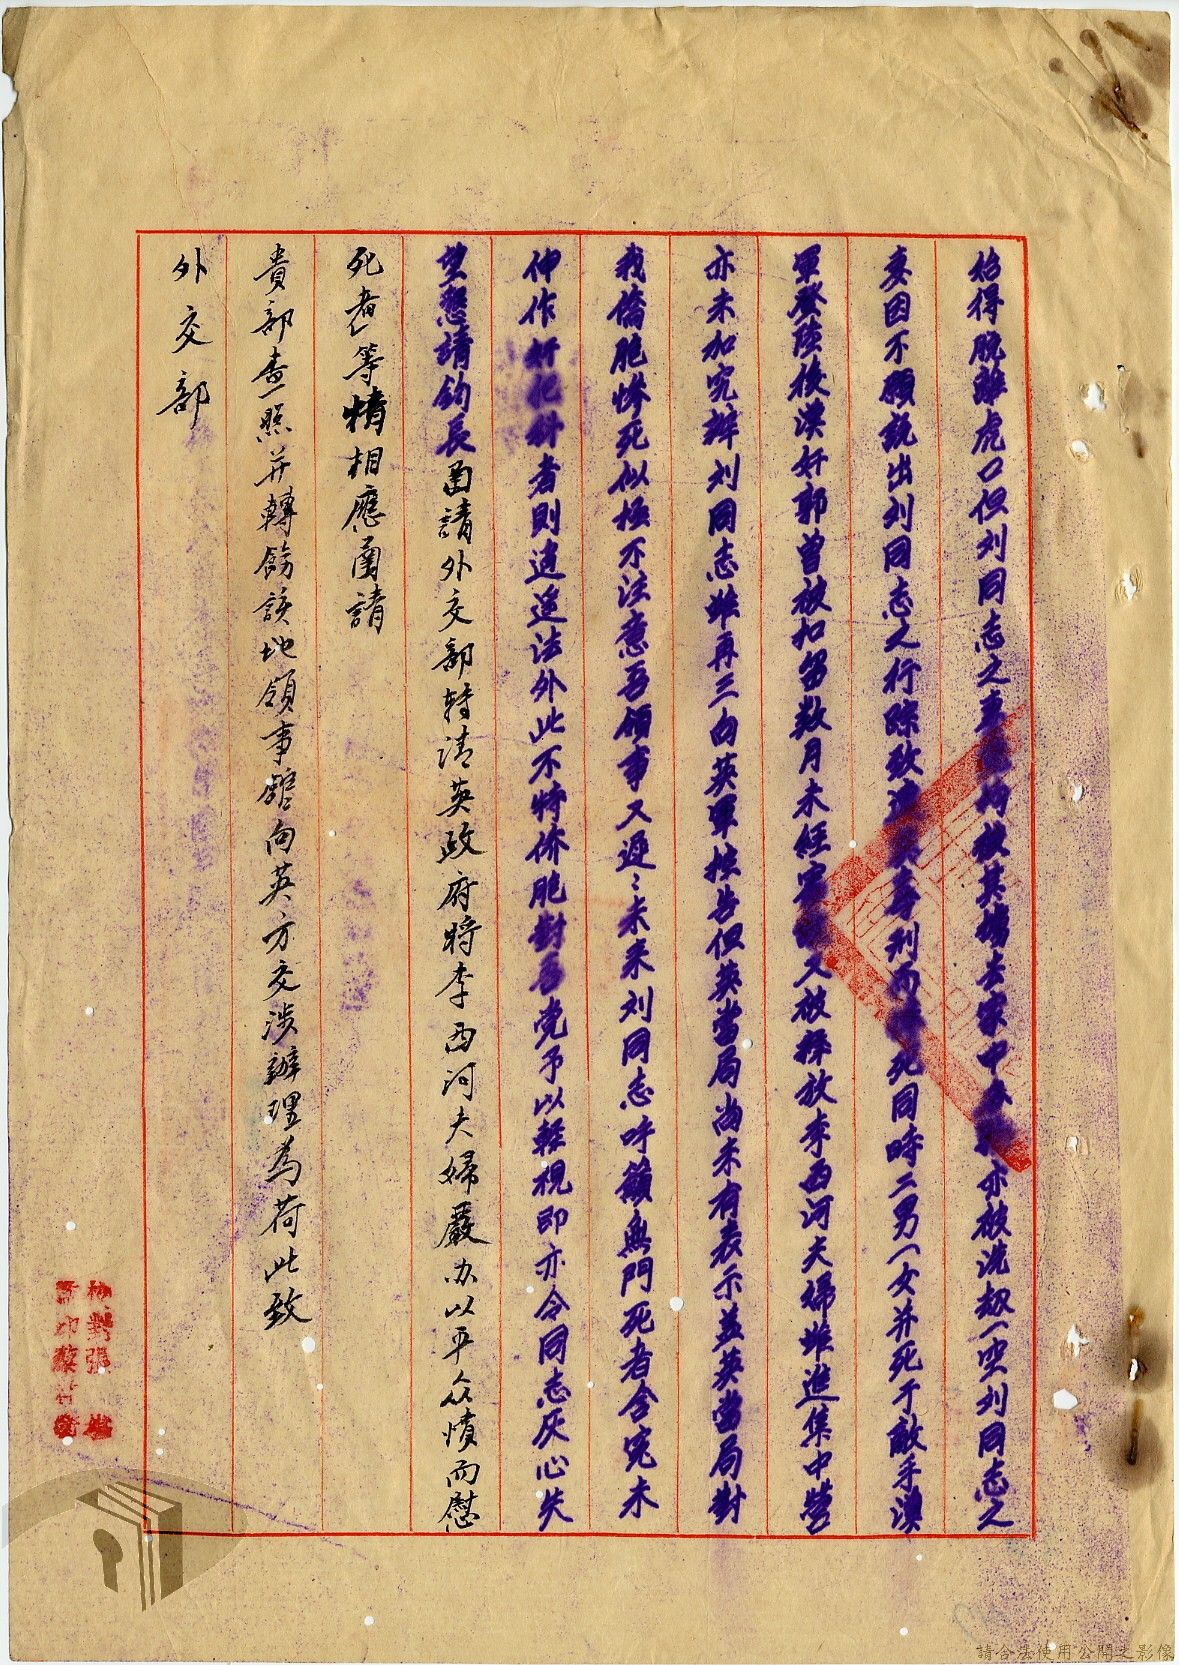 始得脫離虎口但刘同志之 均被其擄去家中 亦被洗劫一空刘同志之
妻因不願說出刘同志之行踪致 毒刑而 死同時二男一女并死于敵手澳
軍登陸後漢奸郭曾被扣留数月未經 又被释放李西河夫婦雖進集中营
亦未加究辦刘同志雖再三向英軍控告但英當局尚未有表示盖英當局對
我僑胞慘死似極不注意吾領事又迟迟未来刘同志呼籲無門死者含冤未
伸作奸犯科者則逍遥法外此不特侨胞對吾党予以輕視即亦令同志灰心失
望懇請鈞長函請外交部转请英政府将李西河夫婦嚴办以平众憤而慰
死者等情相應函請
貴部查照并轉飭該地領事館向英方交涉辦理為荷此致
外交部
校對張
黎
請合法使用公開之影像